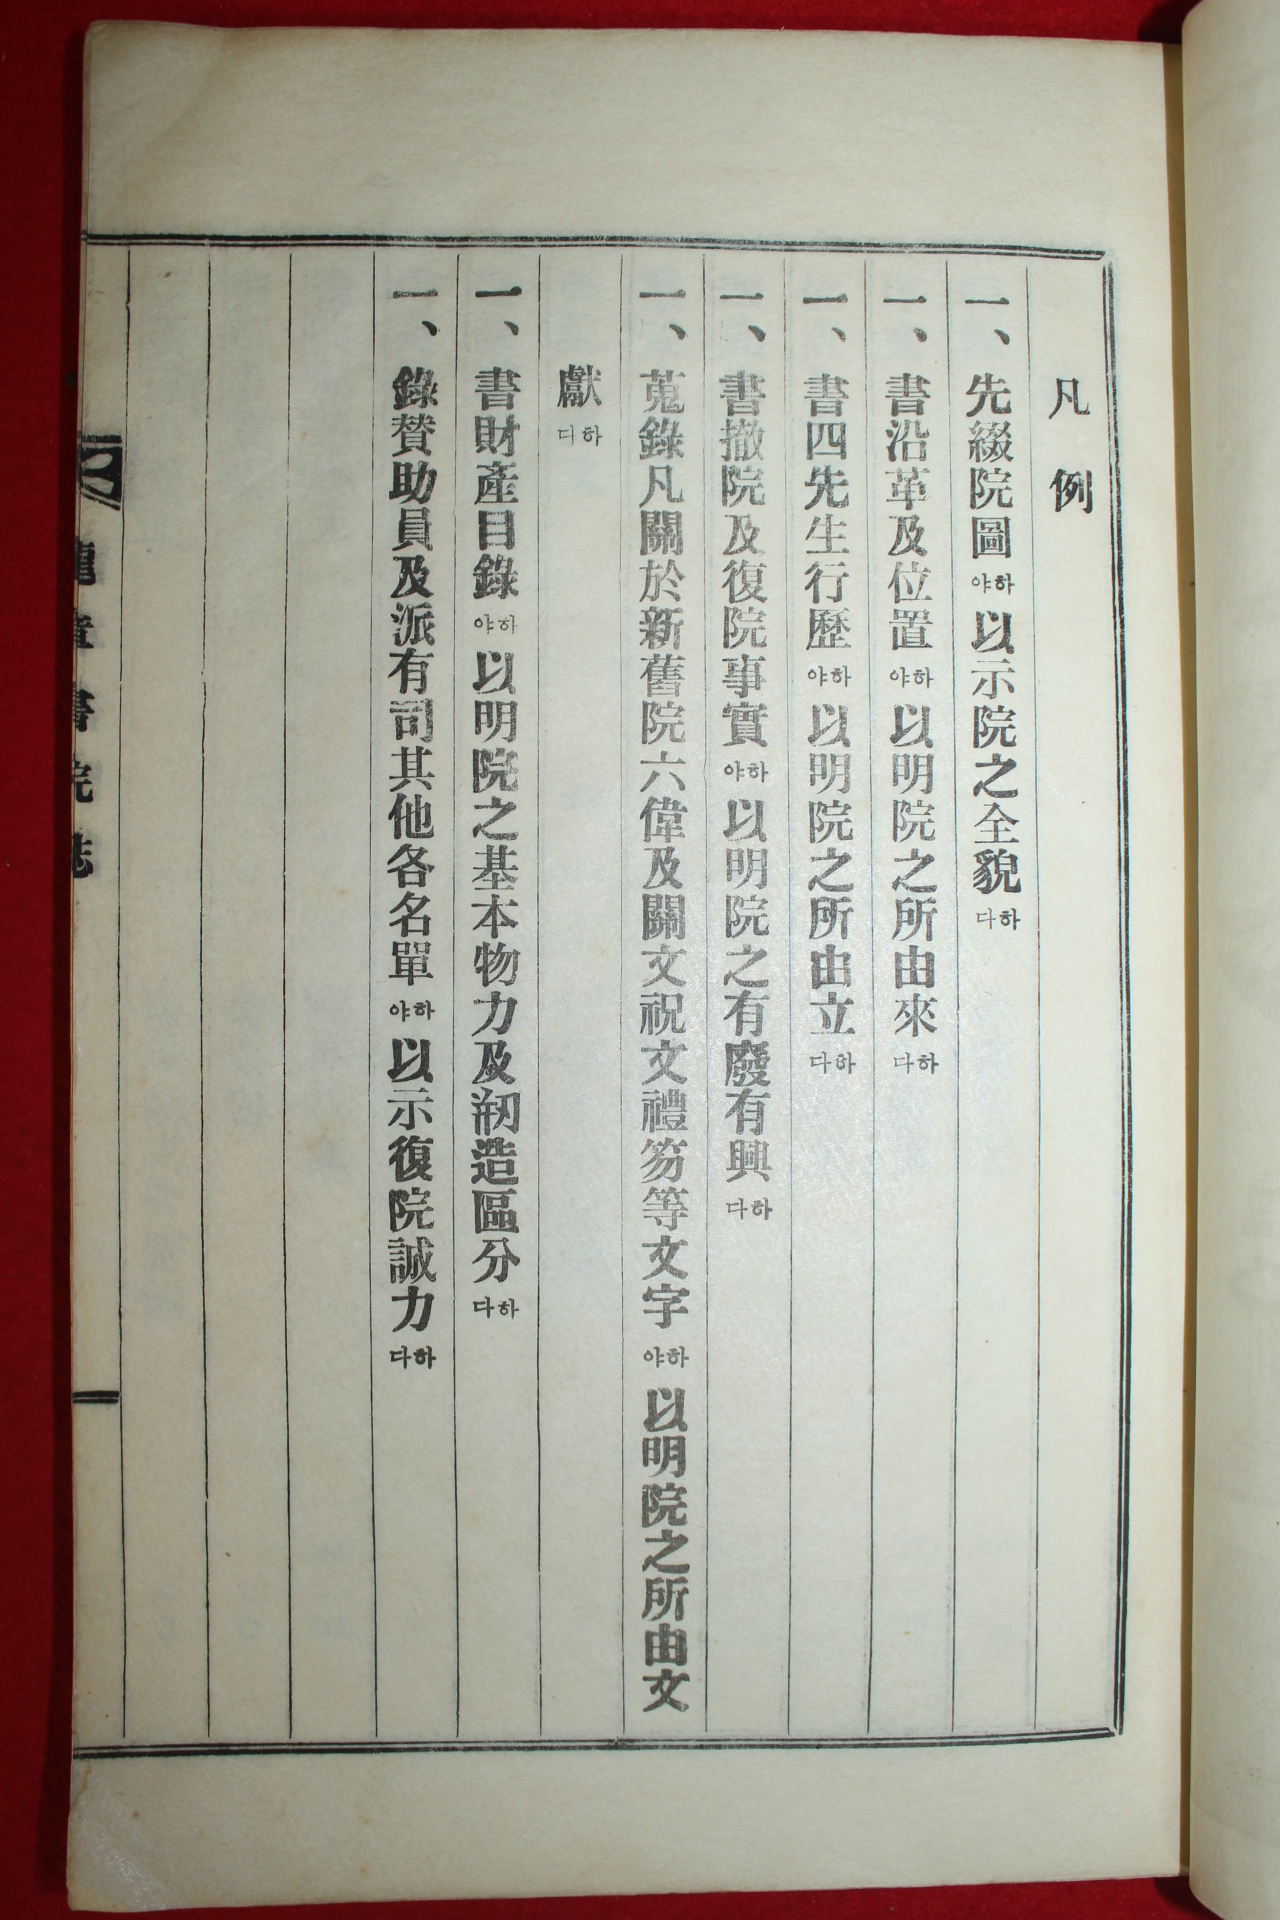 凡例
一、先綴院圖하야以示院之全貌하다
一、書沿革及位置하야以明院之所由來하다
一、書四先生行歷하야以明院之所由立하다
一、書撤院及復院事實하야以明院之有廢有興하다
一、蒐錄凡關於新舊院六偉及關文祝文禮笏等文字하야以明院之所由文
獻하다
一、書財產目錄하야以明院之基本物力及刱造區分하다
一、錄贊助員及派有司其他各名單하야以示復院誠力하다
書院誌